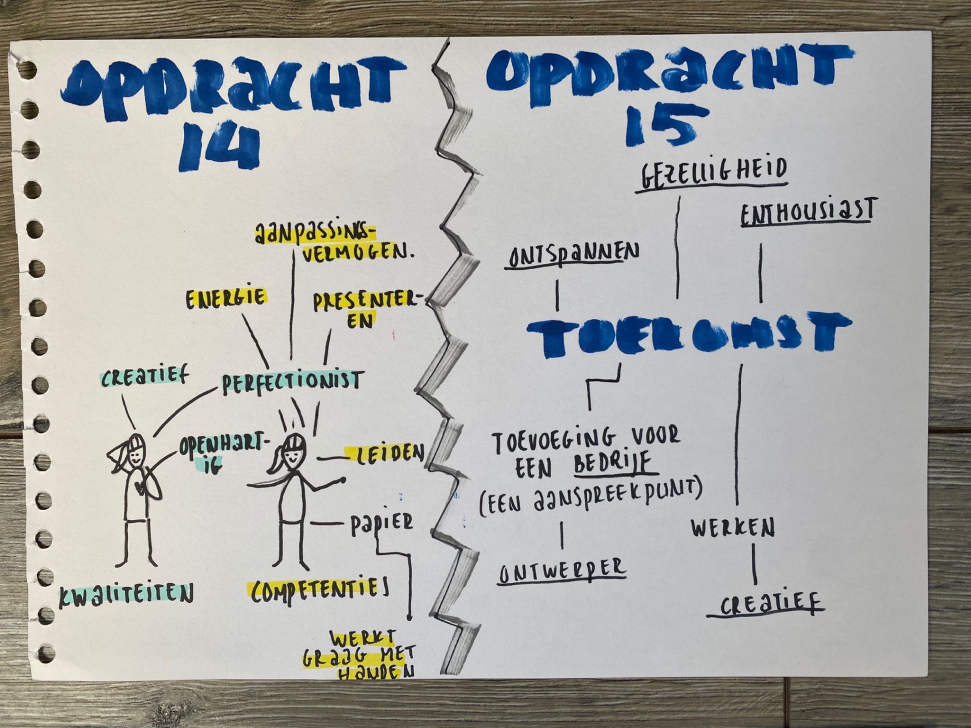 OPDRACHT
14
AANPASSINGS-
VERMOGEN.
ENERGIE
PRESENTER-
EN
CREATIEF
PERFECTIONIST
OPENHART-
IG
LEIDEN
PAPIER
KWALITEITEN
COMPETENTIES
WERKT
GRAAG MET
HANDEN
OPDRACHT
15
GEZELLIGHEID
ENTHOUSIAST
ONTSPANNEN
TOEKOMST
TOEVOEGING VOOR
EEN BEDRIJF
(EEN AANSPREEKPUNT)
WERKEN
ONTWERPER
CREATIEF